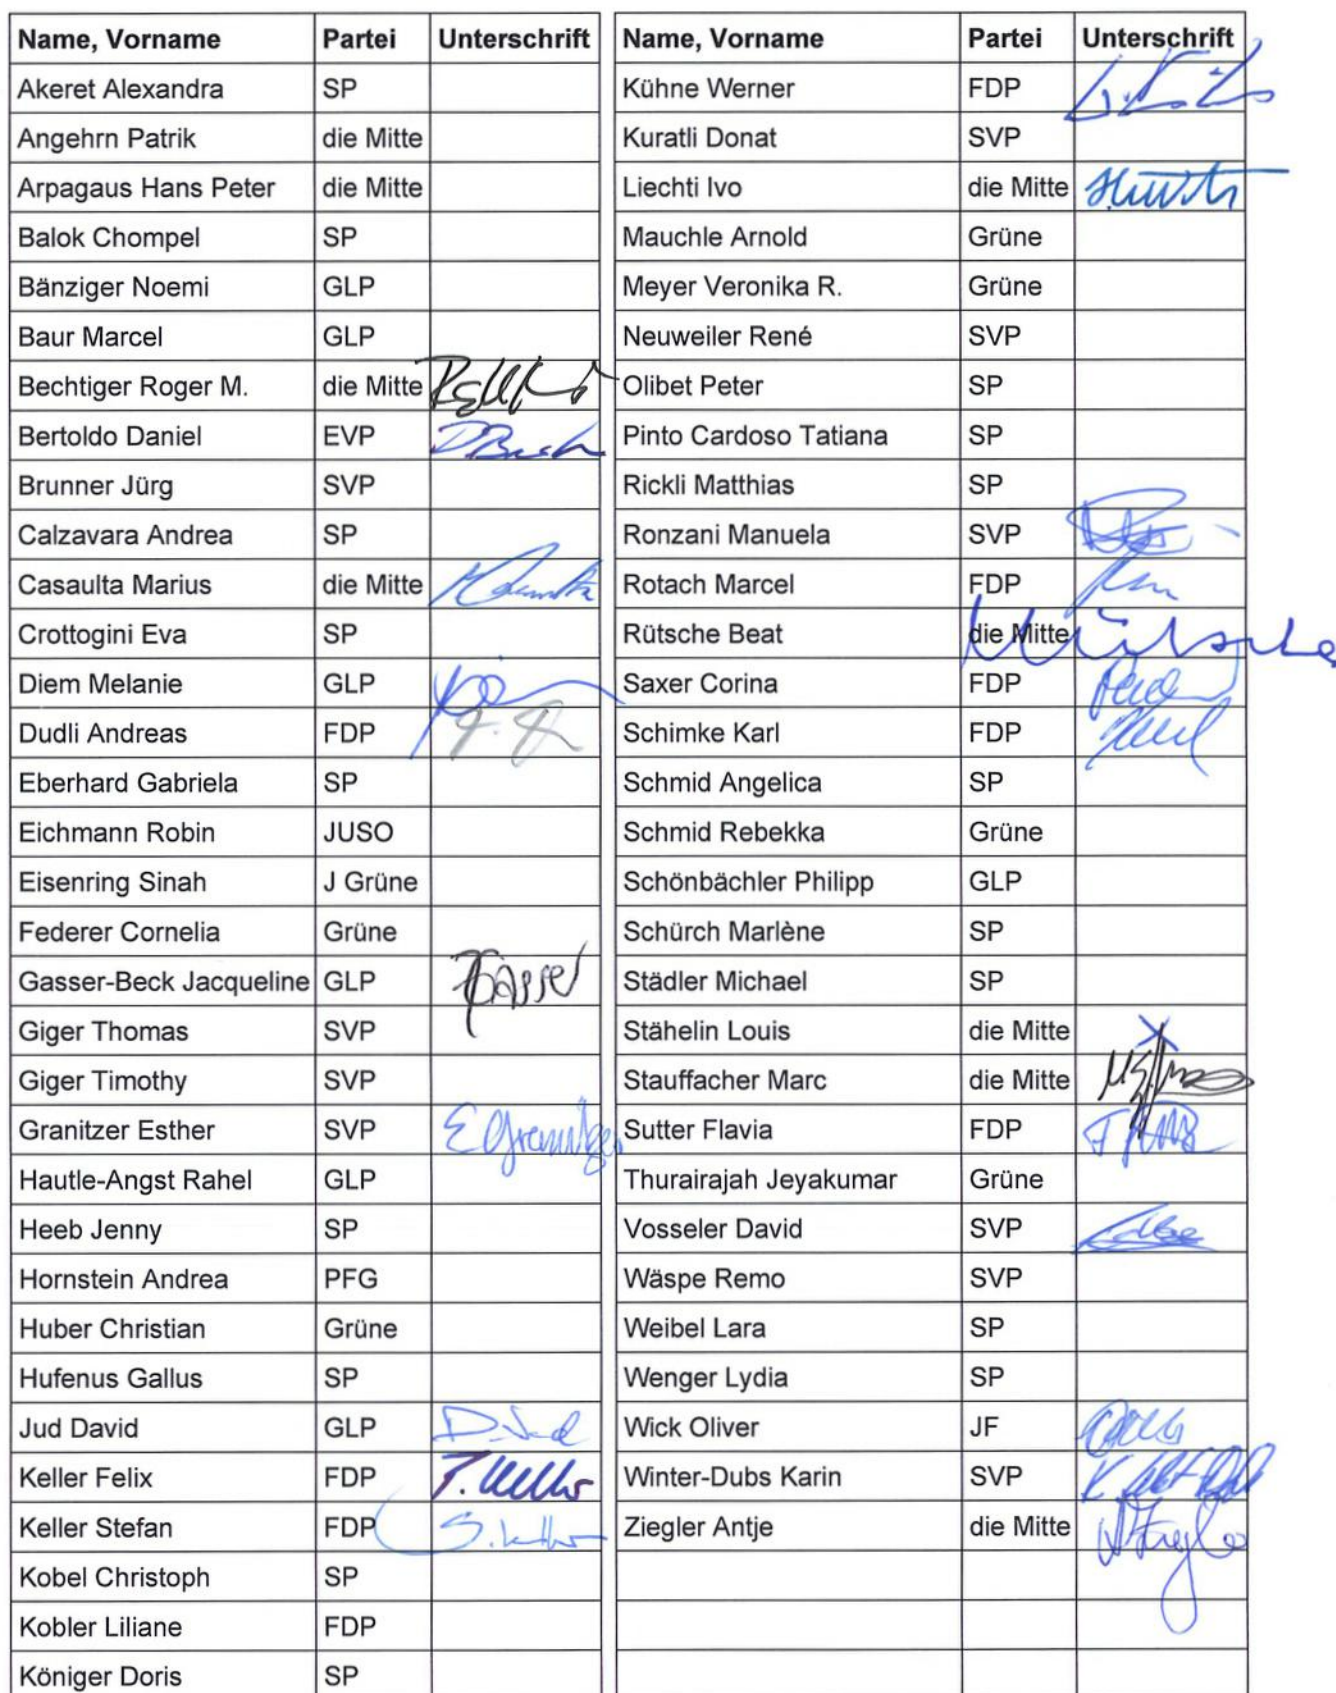 Name, Vorname Partei Unterschrift
Akeret Alexandra SP
Angehrn Patrik die Mitte
Arpagaus Hans Peter die Mitte
Balok Chompel SP
Bänziger Noemi GLP
Baur Marcel GLP
Bechtiger Roger M. die Mitte
Bertoldo Daniel EVP
Brunner Jürg SVP
Calzavara Andrea SP
Casaulta Marius die Mitte
Crottogini Eva SP
Diem Melanie GLP
Dudli Andreas FDP
Eberhard Gabriela SP
Eichmann Robin JUSO
Eisenring Sinah J Grüne
Federer Cornelia Grüne
Gasser-Beck Jacqueline GLP
Giger Thomas SVP
Giger Timothy SVP
Granitzer Esther SVP
Hautle-Angst Rahel GLP
Heeb Jenny SP
Hornstein Andrea PFG
Huber Christian Grüne
Hufenus Gallus SP
Jud David GLP D. Jud
Keller Felix FDP
Keller Stefan FDP S. Keller
Kobel Christoph SP
Kobler Liliane FDP
Königer Doris SP
Name, Vorname Partei Unterschrift
Kühne Werner FDP
Kuratli Donat SVP
Liechti Ivo die Mitte
Mauchle Arnold Grüne
Meyer Veronika R. Grüne
Neuweiler René SVP
Olibet Peter SP
Pinto Cardoso Tatiana SP
Rickli Matthias SP
Ronzani Manuela SVP
Rotach Marcel FDP
Rütsche Beat die Mitte
Saxer Corina FDP
Schimke Karl FDP
Schmid Angelica SP
Schmid Rebekka Grüne
Schönbächler Philipp GLP
Schürch Marlène SP
Städler Michael SP
Stähelin Louis die Mitte
Stauffacher Marc die Mitte
Sutter Flavia FDP
Thurairajah Jeyakumar Grüne
Vosseler David SVP
Wäspe Remo SVP
Weibel Lara SP
Wenger Lydia SP
Wick Oliver JF
Winter-Dubs Karin SVP
Ziegler Antje die Mitte